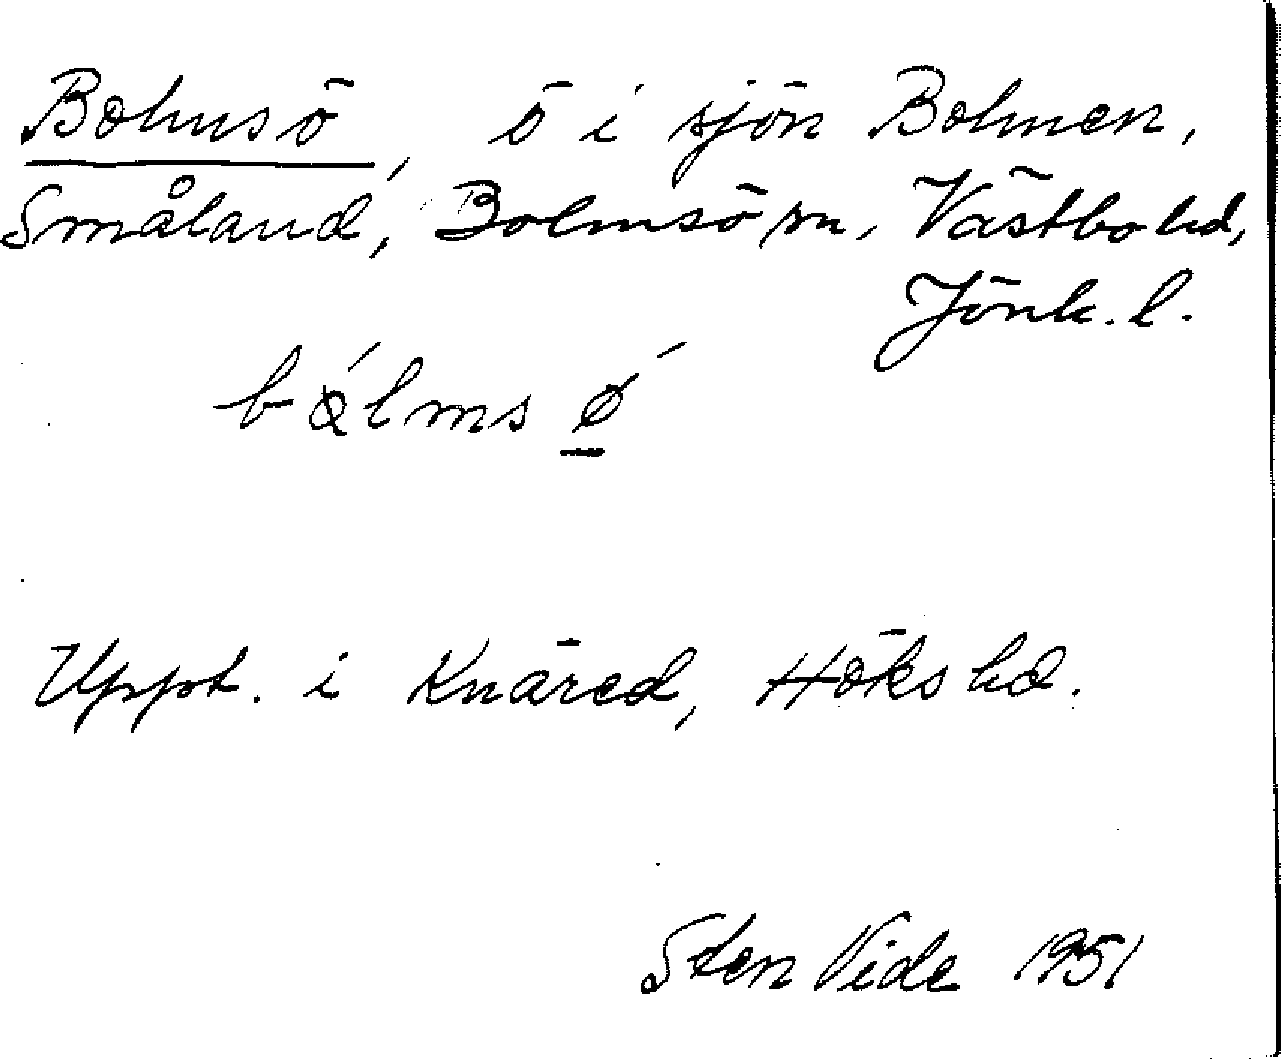 Bolmsö, ö i sjön Bolmen,
Småland, Bolmsö sn, Västbo hd,
Jönk. l.
bålmsø
Uppt. i Knäred, Höks hd.
Sten Vide 1951